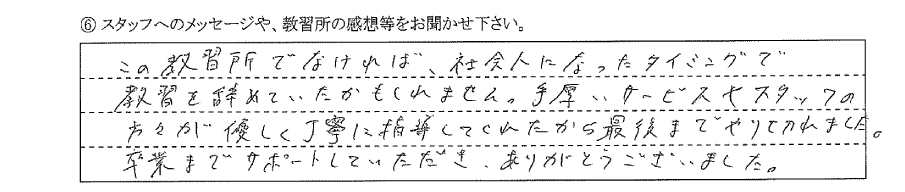 ⑥ スタッフへのメッセージや、教習所の感想等をお聞かせ下さい。
この教習所でなければ、社会人になったタイミングで
教習を辞めていたかもしれません。手厚いサービスやスタッフの
方々が優しく丁寧に指導してくれたから最後までやりきれました。
卒業までサポートしていただき、ありがとうございました。